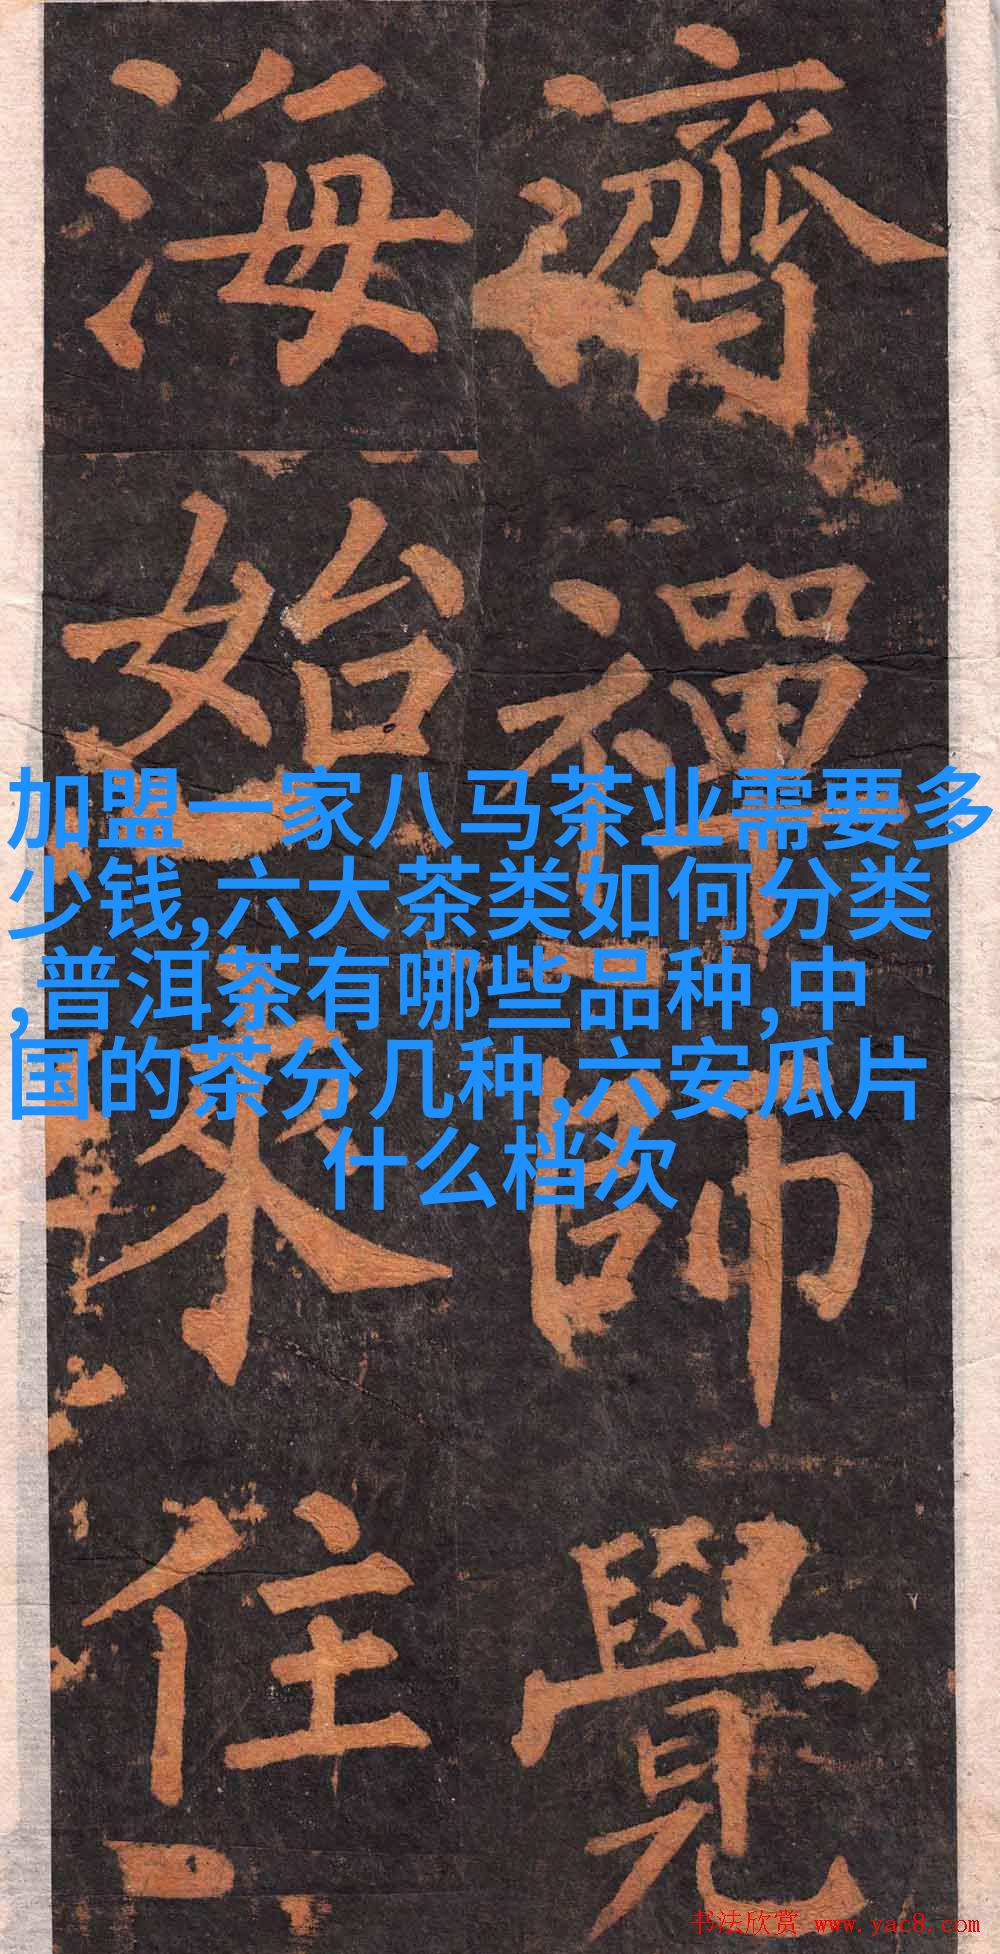 濟禪師覺
海始來住
加盟一家八马茶业需要多
少钱,六大茶类如何分类
,普洱茶有哪些品种,中
国的茶分几种,六安瓜片
什么档次
书法欣赏 www.yac8.com